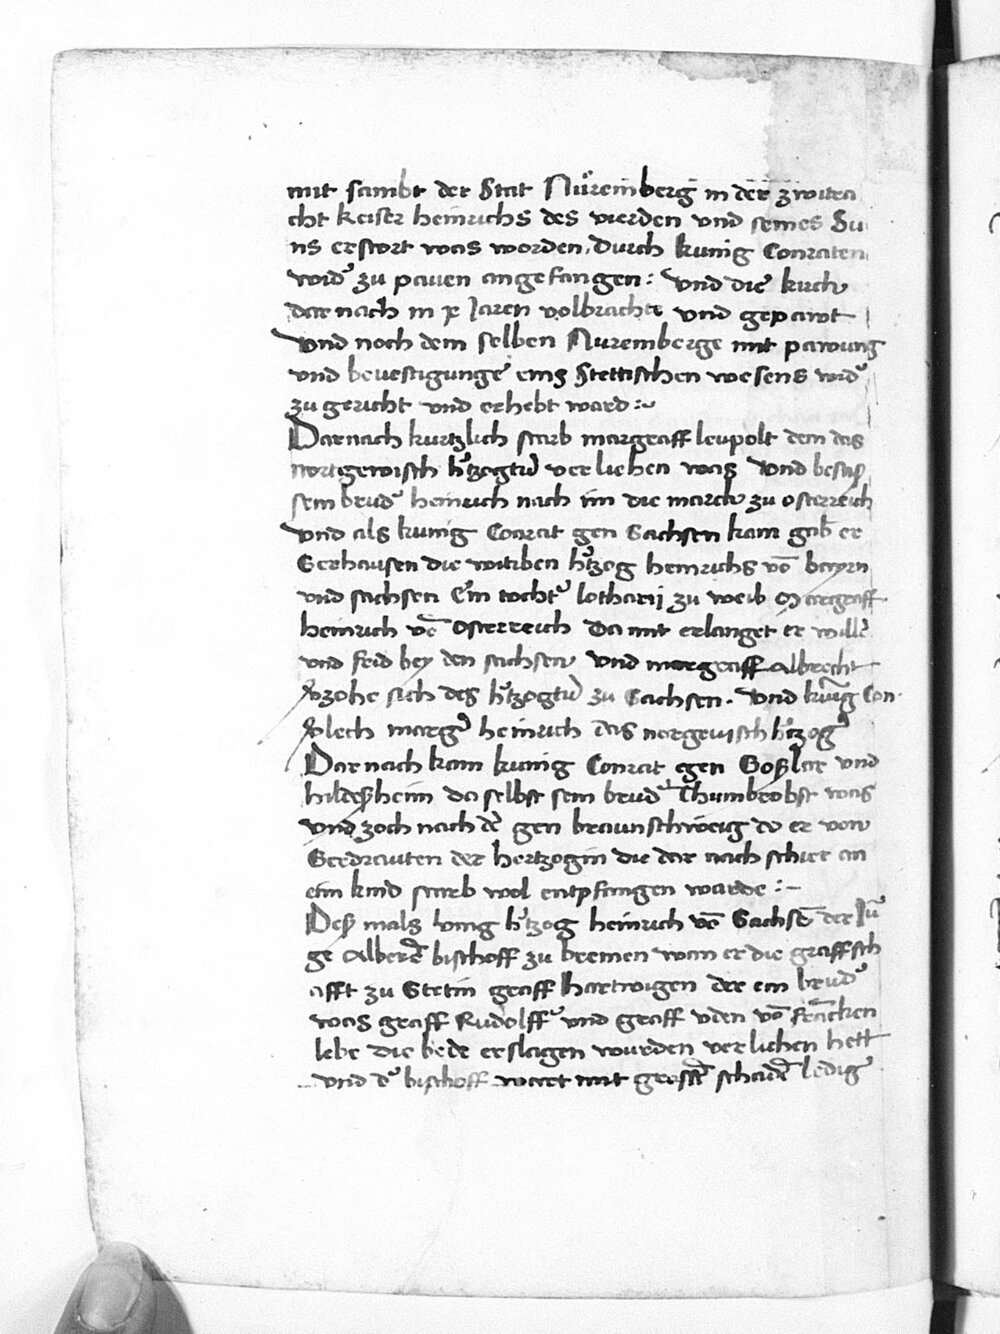 mit sambt der Stat Nüremberg in der zwitra
cht keiser heinrichs des vierden vnd seines Su
ns erstort was worden, durch kunig Conraten
wid' zu pauen angefangen : vnd die kirch
dar nach in x Jaren volbracht vnd gepawt
vnd noch dem selben Nuremberge mit pawung
vnd bevestigunge eins Stettischen wesens wid'
zu gericht vnd erhebt ward :~
Darnach kurtzlich starb margraff leupolt dem das
norigewisch h'tzogtu verlichen was vnd besaß
sein brud' heinrich nach im die march zu osterreich
vnd als kunig Conrat gen Sachsen kam gab er
Gerhausen die witiben h'tzog heinrichs vō bayrn
vnd sachsen ein tocht' lotharij zu weib Margraff
heinrich vō Osterreich Da mit erlanget er will
vnd frid bey den sachsen vnd margraff Albrecht
v'zohe sich des h'tzogtu zu Sachsen. vnd kunig Con.
v'lech marg' heinrich das norgewisch h'tzog
Dar nach kam kunig Conrat gen Goßlar vnd
hildeßheim do selbst sein brud' Thumbrobst was
vnd zoch nach de gen braunschweig do er von
Gerdrauten der hertzogin die dar nach schier an
eim kind starb wol entpfangen warde :~
Deß mals vieng h'tzog heinrich vō Sachsē der Jū
ge Alberō bischoff zu bremen wan er die graffsch
afft zu Stetin graff hartwigen der ein brud'
was graff Rudolff' vnd graff vden vō frācken
lebe die bede erslagen wurden verlichen hett
vnd d' bischoff wart mit grossē schadē ledig